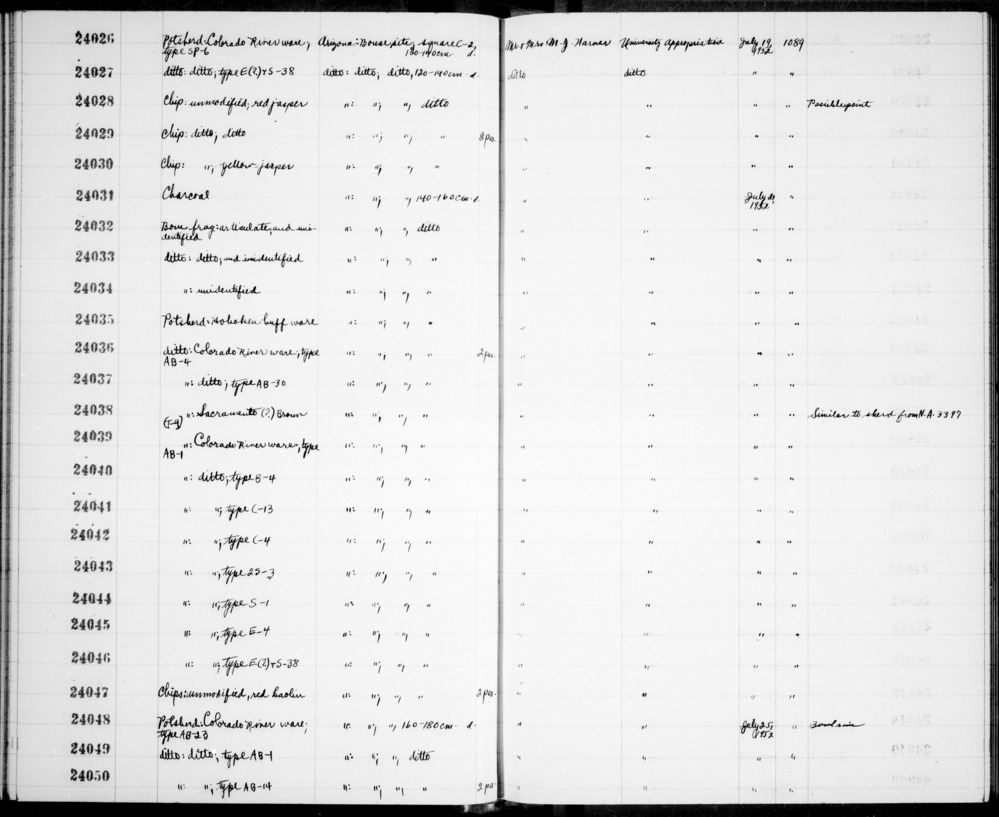 24026 Potsherd: Colorado River ware, Arizona: Bouse site, square C-2, Mr & Mrs M. J. Harner University Appropriation July 19, 1089
type SP-6 120-140cm d. 1952
24027 ditto: ditto; type E(?)+S-38 ditto: ditto; ditto, 120-140cm d. ditto ditto " "
24028 Chip: unmodified; red jasper ": "; ", ditto " " " " Possible point
24029 Chip: ditto; ditto ": "; ", " 2 pcs. " " " "
24030 Chip: "; yellow jasper ": "; ", " " " " "
24031 Charcoal ": "; ", 140-160cm d. " " July 21, "
1952
24032 Bone frag: articulate, and uni- ": "; ", ditto " " " "
dentified
24033 ditto: ditto; and unidentified ": "; ", " " " " "
24034 ": unidentified ": "; ", " " " " "
24035 Potsherd: Hohokam buff ware ": "; ", " " " " "
24036 ditto: Colorado River ware; type ": "; ", " 2 pcs. " " " "
AB-4
24037 ": ditto; type AB-30 ": "; ", " " " " "
24038 ": Sacramento (?) Brown ": "; ", " " " " " Similar to sherd from N.A. 3397
(T-9)
24039 ": Colorado River ware; type ": "; ", " " " " "
AB-1
24040 ": ditto; type B-4 ": "; ", " " " " "
24041 ": "; type C-13 ": "; ", " " " " "
24042 ": "; type C-4 ": "; ", " " " " "
24043 ": "; type 2S-3 ": "; ", " " " " "
24044 ": "; type S-1 ": "; ", " " " " "
24045 ": "; type E-4 ": "; ", " " " " "
24046 ": "; type E(?)+S-38 ": "; ", " " " " "
24047 Chips: unmodified, red kaolin ": "; ", " 2 pcs. " " " "
24048 Potsherd: Colorado River ware; ": "; ", 160-180cm d. " " July 25, " Bowl rim
type AB-23 1952
24049 ditto: ditto; type AB-1 ": "; ", ditto " " " "
24050 ": "; type AB-14 ": "; ", " 2 pcs " " " "